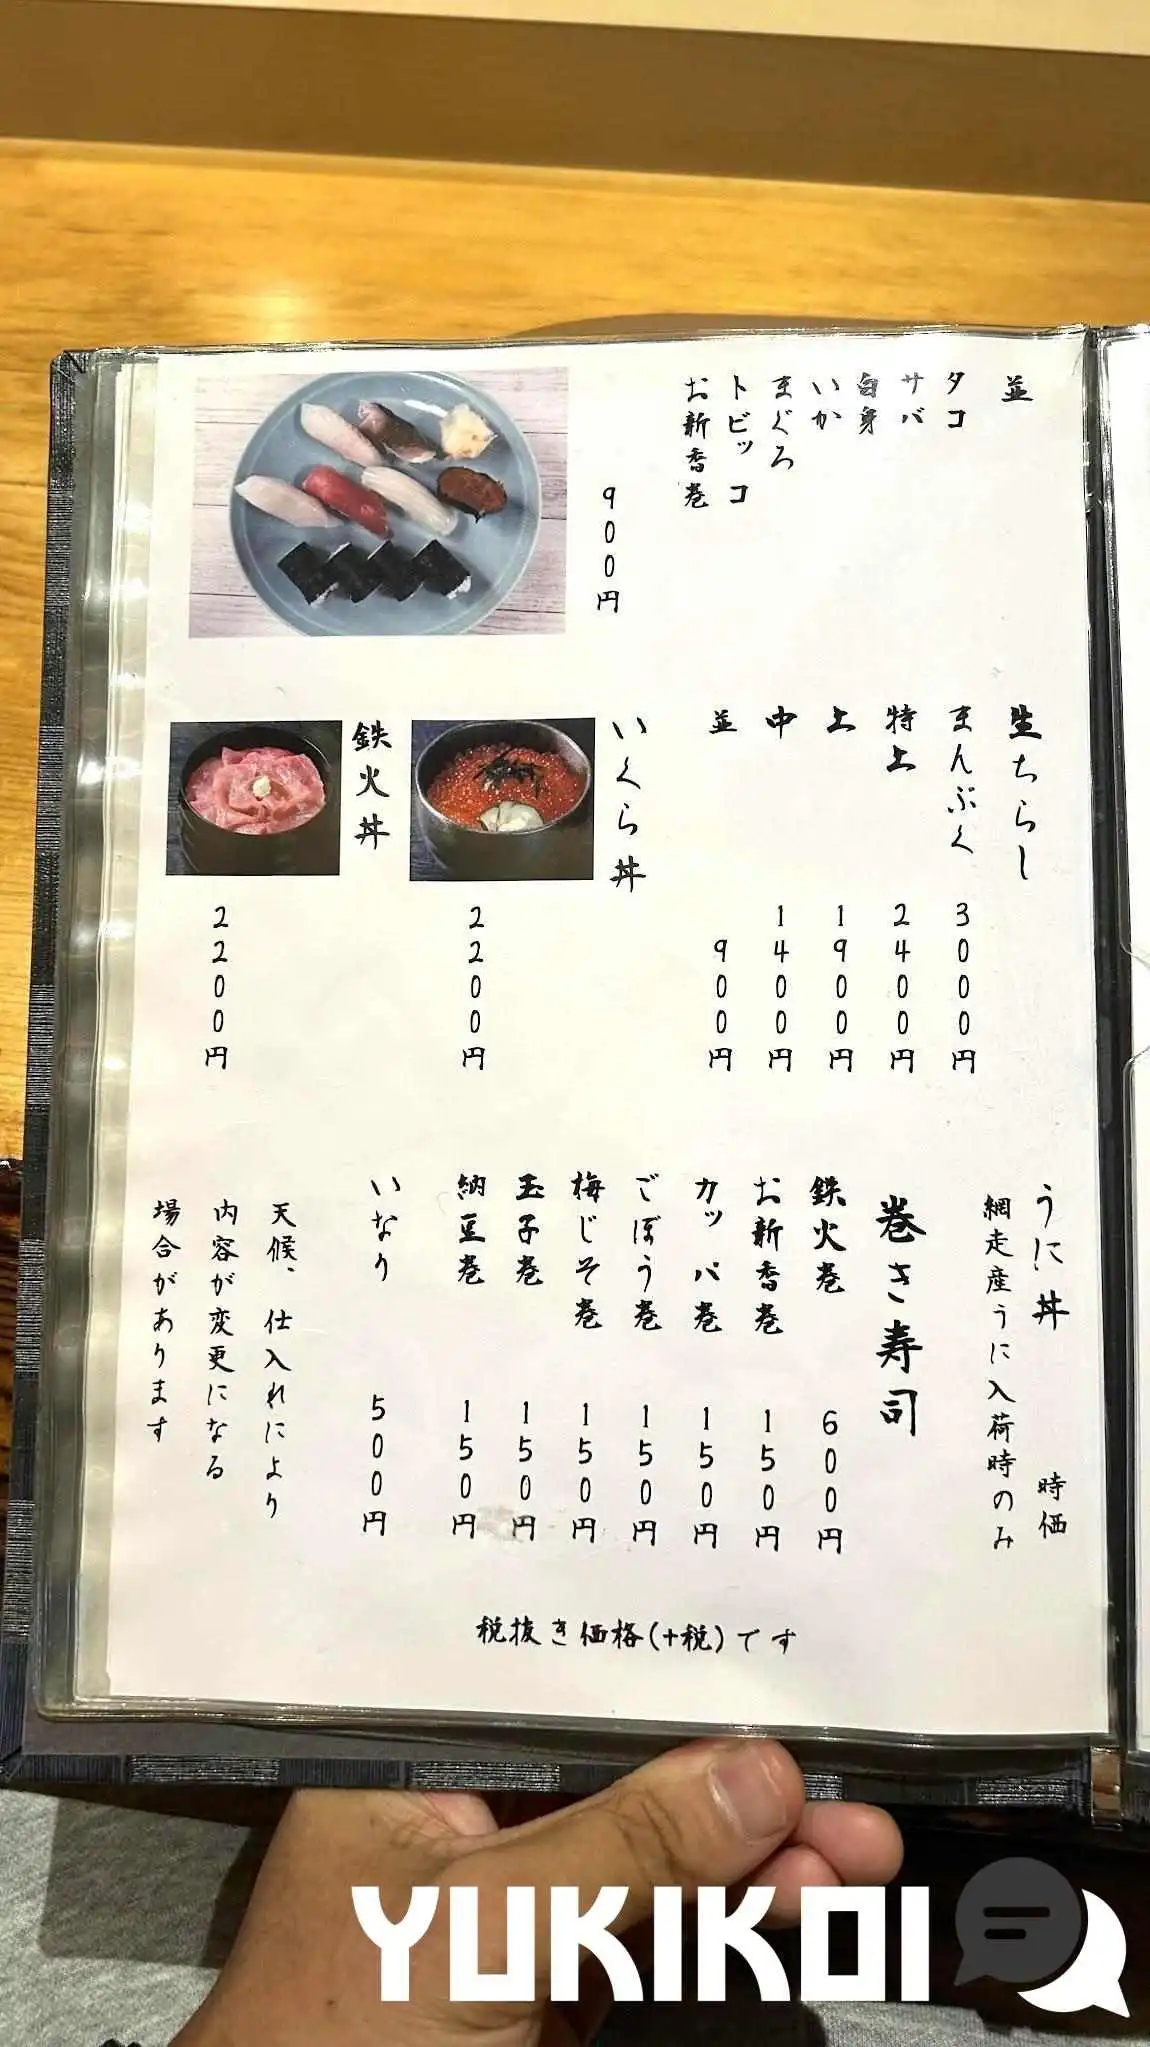 並
タコ
サバ
白身
いか
まぐろ
トビッコ
お新香巻
900円
生ちらし
まんぷく 3000円
特上 2400円
上 1900円
中 1400円
並 900円
いくら丼
2200円
鉄火丼
2200円
うに丼 時価
網走産うに入荷時のみ
巻き寿司
鉄火巻 600円
お新香巻 150円
カッパ巻 150円
ごぼう巻 150円
梅じそ巻 150円
玉子巻 150円
納豆巻 150円
いなり 500円
天候、仕入れにより
内容が変更になる
場合があります
税抜き価格(+税)です
YUKIKOI